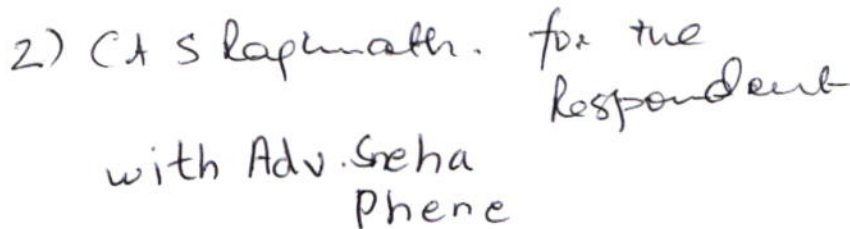 2) CA S Raghunath. for the
Respondent
with Adv. Sneha
Phene